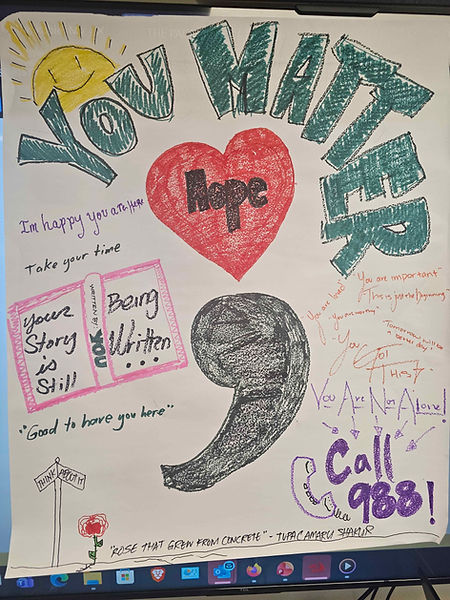 YOU MATTER
Hope
I'm happy you are here
Take your time
Your
Story
is
Still
WRITTEN BY:
YOU
Being
Written
...
"Good to have you here"
"You are important"
This is just the beginning"
You are loved
"You are worthy"
Tomorrow will be a
better day
"You
GOT
THIS"
You Are Not Alone!
Call
988!
THINK ABOUT IT
"ROSE THAT GREW FROM CONCRETE" - TUPAC AMARU SHAKUR